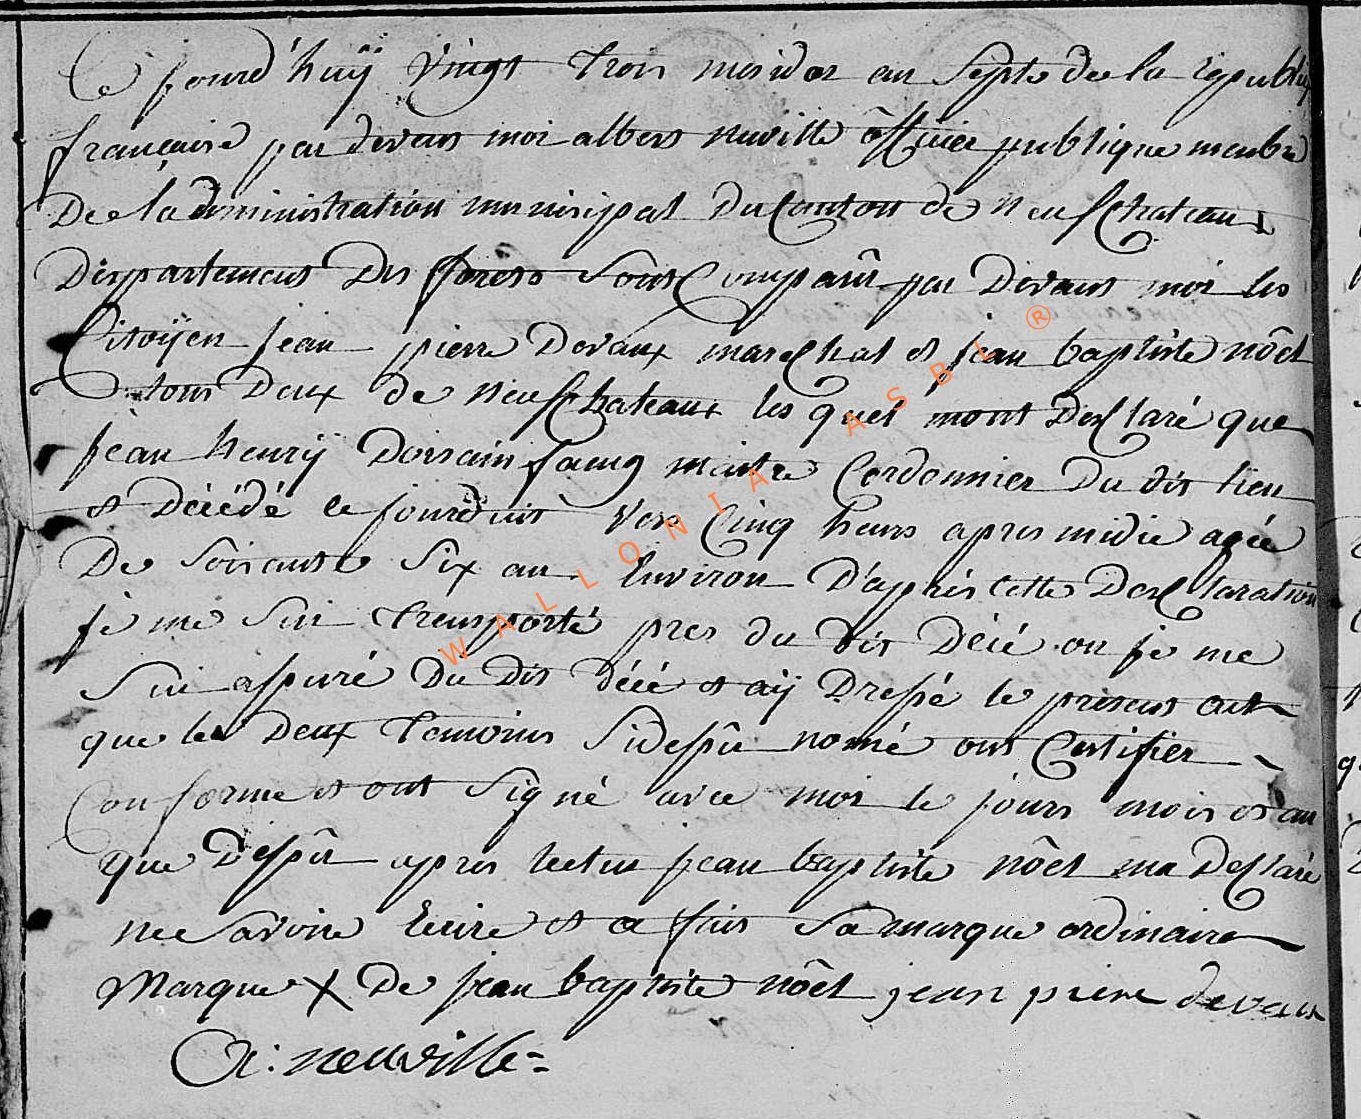 Ce jourd'huÿ vingt trois mesidor an Septe de la republiq
francaise par devant moi albert neuville ôfficier publique menbre
De la'dministration municipal Du Canton de neufchateau
Departement Des forets Sont Comparû par Devant moi les
Citoÿen jean pierre Devaux marechal et jean baptiste nöel
tous Deux de neufchateaux les quel mont Desclaré que
jean henrÿ maitre Cordonnier Du dit lieu
et Décédé ce jourd'uit Vers Cinq heurs apres midie agée
De Soisante Six an Environ D'après cette Desclaration
je me Sui trensporté pres du dit Décé ou je me
Sui assuré Du Dit Décé et aÿ Dressé le present act
que les Deux temoins Sidessû nomé ont Certifier
Conforme et ont Signé avce moi le jours mois et an
que Dessû apres lectur jean baptiste nöel ma Desclaré
ne Savoire Ecire et a fait Sa marque ordinaire
Marque X De jean baptiste nöel jean piere devaux
A: neuville =
WALLONIA ASBL ®